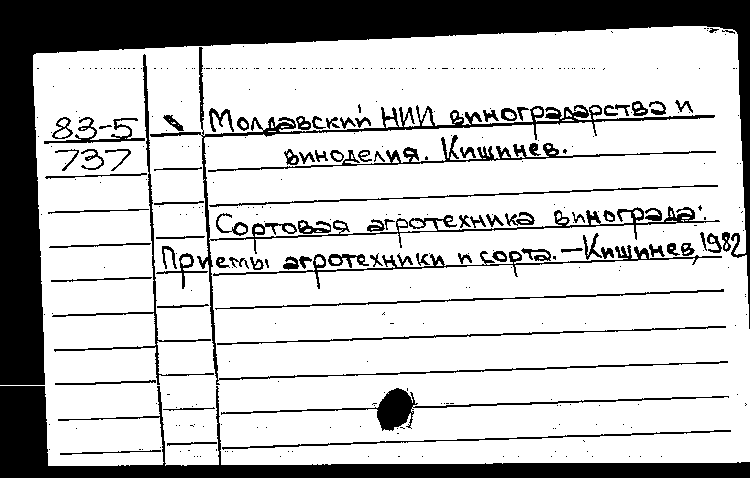 83-5 Молдавский НИИ виноградарства и
737 виноделия. Кишинев.
Сортовая агротехника винограда:
Приемы агротехники и сорта. — Кишинев, 1982